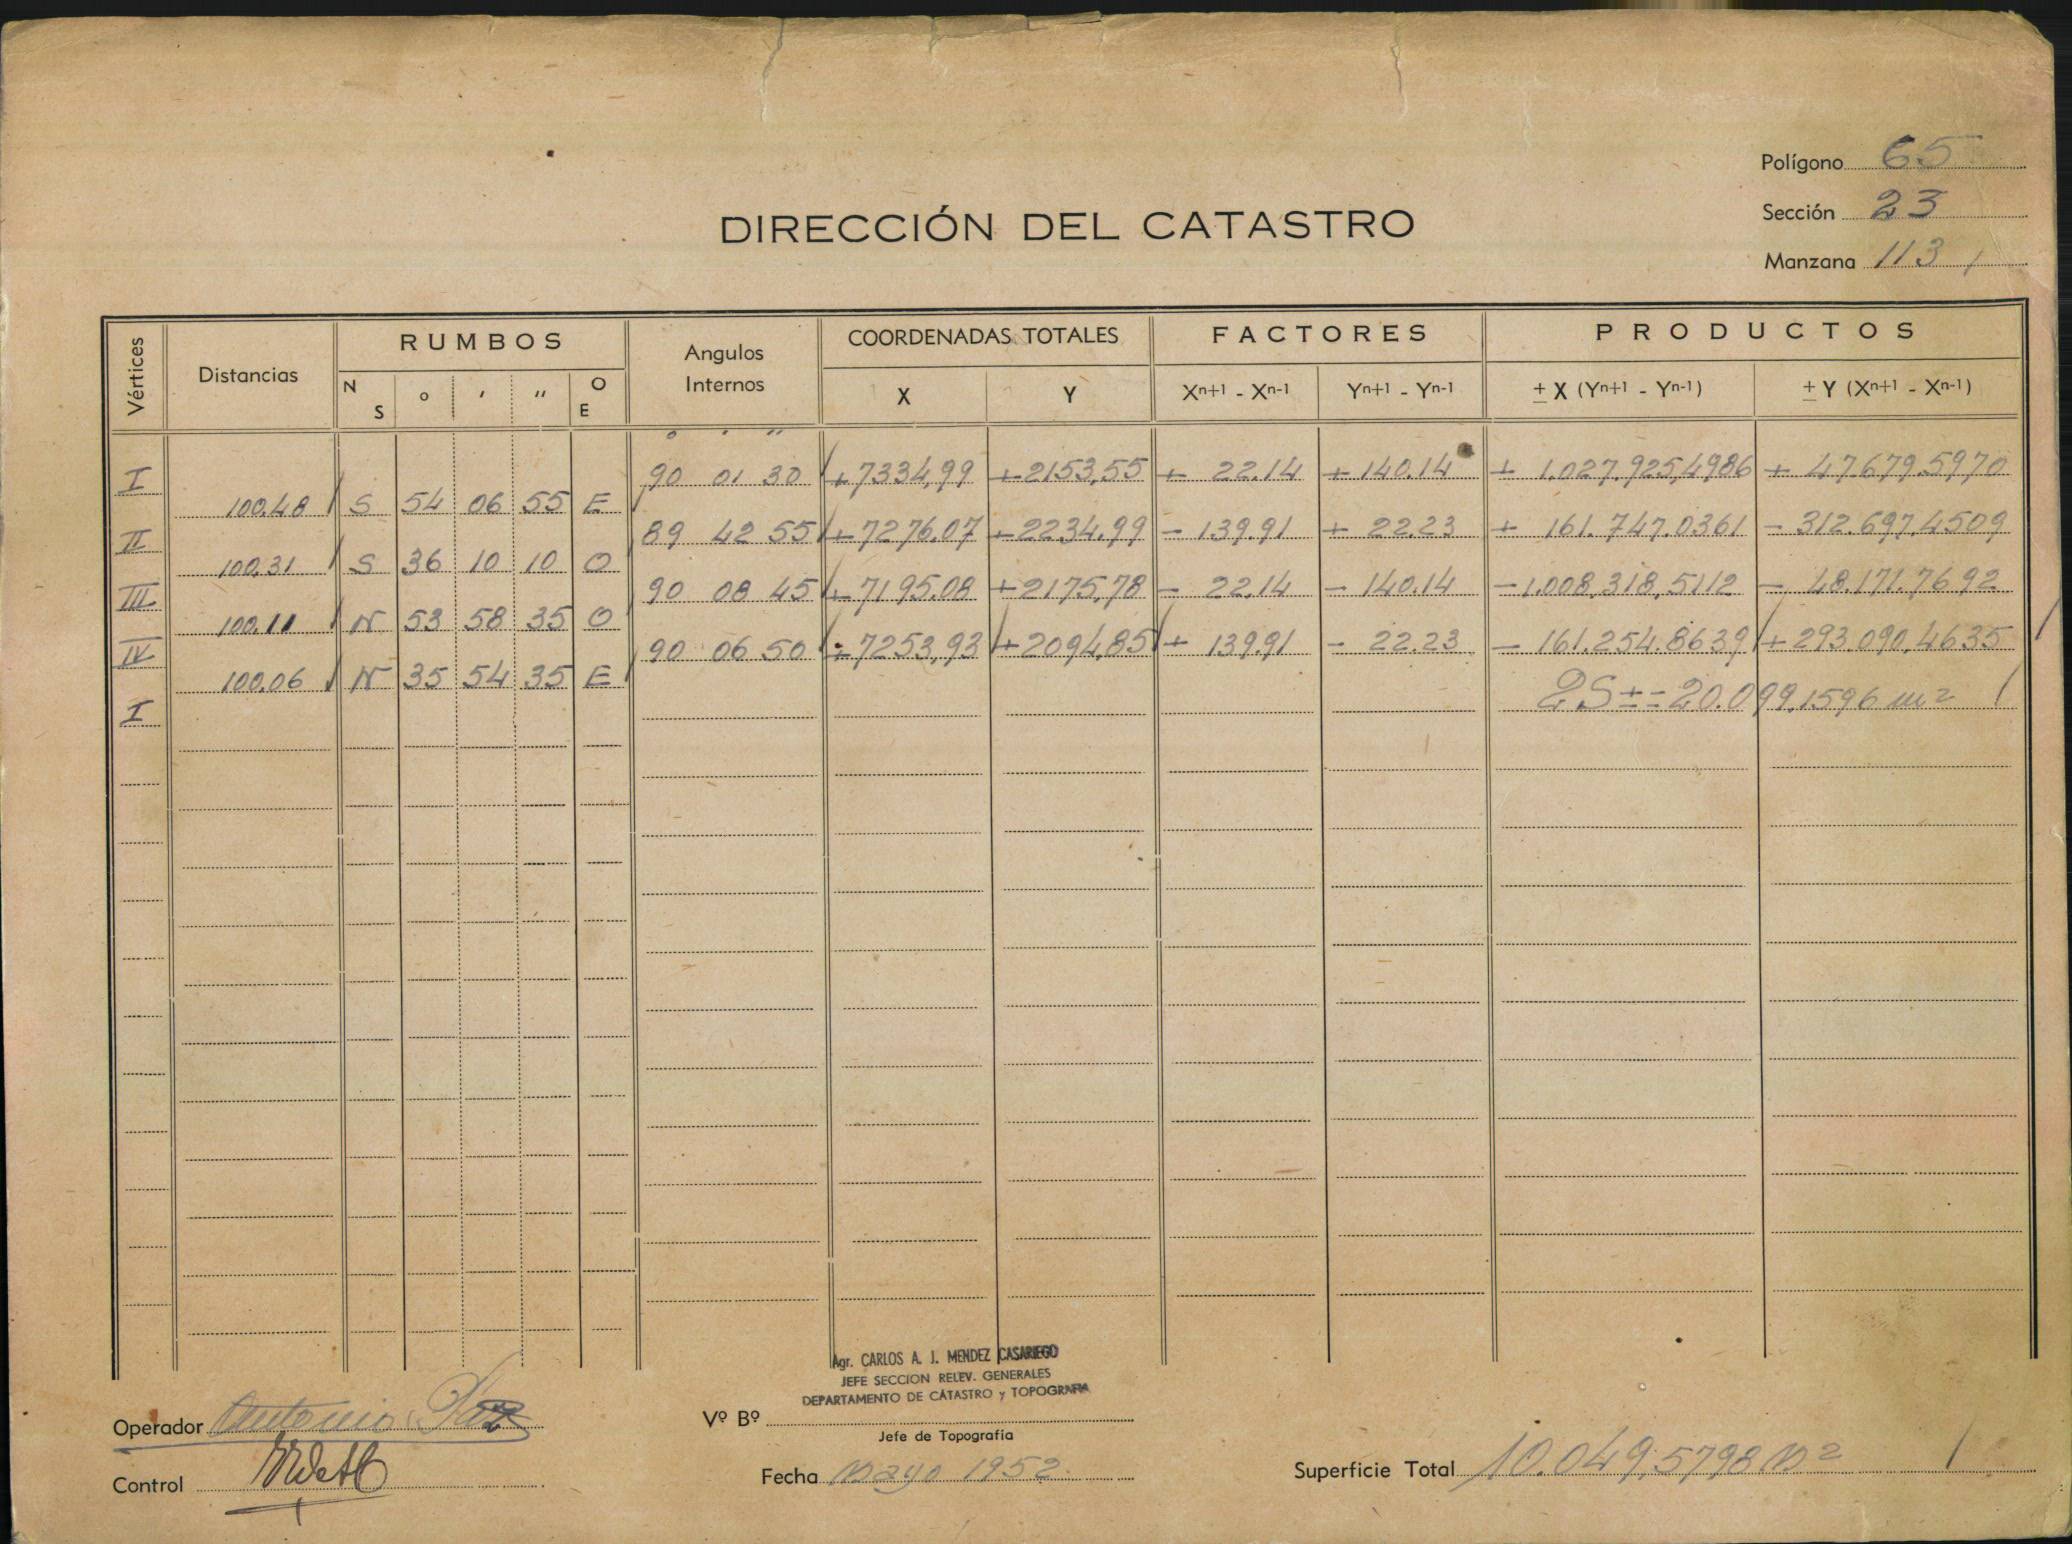 Polígono 65
Sección 23
DIRECCIÓN DEL CATASTRO
Manzana 113
Vértices Distancias RUMBOS Angulos Internos COORDENADAS TOTALES FACTORES PRODUCTOS
N S ° ′ ″ O E X Y Xⁿ⁺¹ - Xⁿ⁻¹ Yⁿ⁺¹ - Yⁿ⁻¹ ± X (Yⁿ⁺¹ - Yⁿ⁻¹) ± Y (Xⁿ⁺¹ - Xⁿ⁻¹)
° ′ ″
I 90 01 30 +7334,99 +2153,55 + 22.14 +140.14 + 1.027.925,4986 + 47.679.5970
100.48 S 54 06 55 E
II 89 42 55 +7276.07 +2234.99 - 139.91 + 22.23 + 161.747.0361 - 312.697.4509
100.31 S 36 10 10 O
III 90 08 45 +7195.08 +2175,78 - 22.14 - 140.14 -1.008.318,5112 - 48.171.7692
100.11 N 53 58 35 O
IV 90 06 50 +7253,93 +2094,85 + 139.91 - 22.23 - 161.254.8639 +293.090.4635
100.06 N 35 54 35 E
I 2S±=20.099.1596 m²
Agr. CARLOS A. J. MENDEZ CASARIEGO
JEFE SECCION RELEV. GENERALES
DEPARTAMENTO DE CATASTRO y TOPOGRAFIA
Operador Antonio Paz
Vº Bº
Jefe de Topografía
Control
Fecha Mayo 1952
Superficie Total 10.049,5798 m²